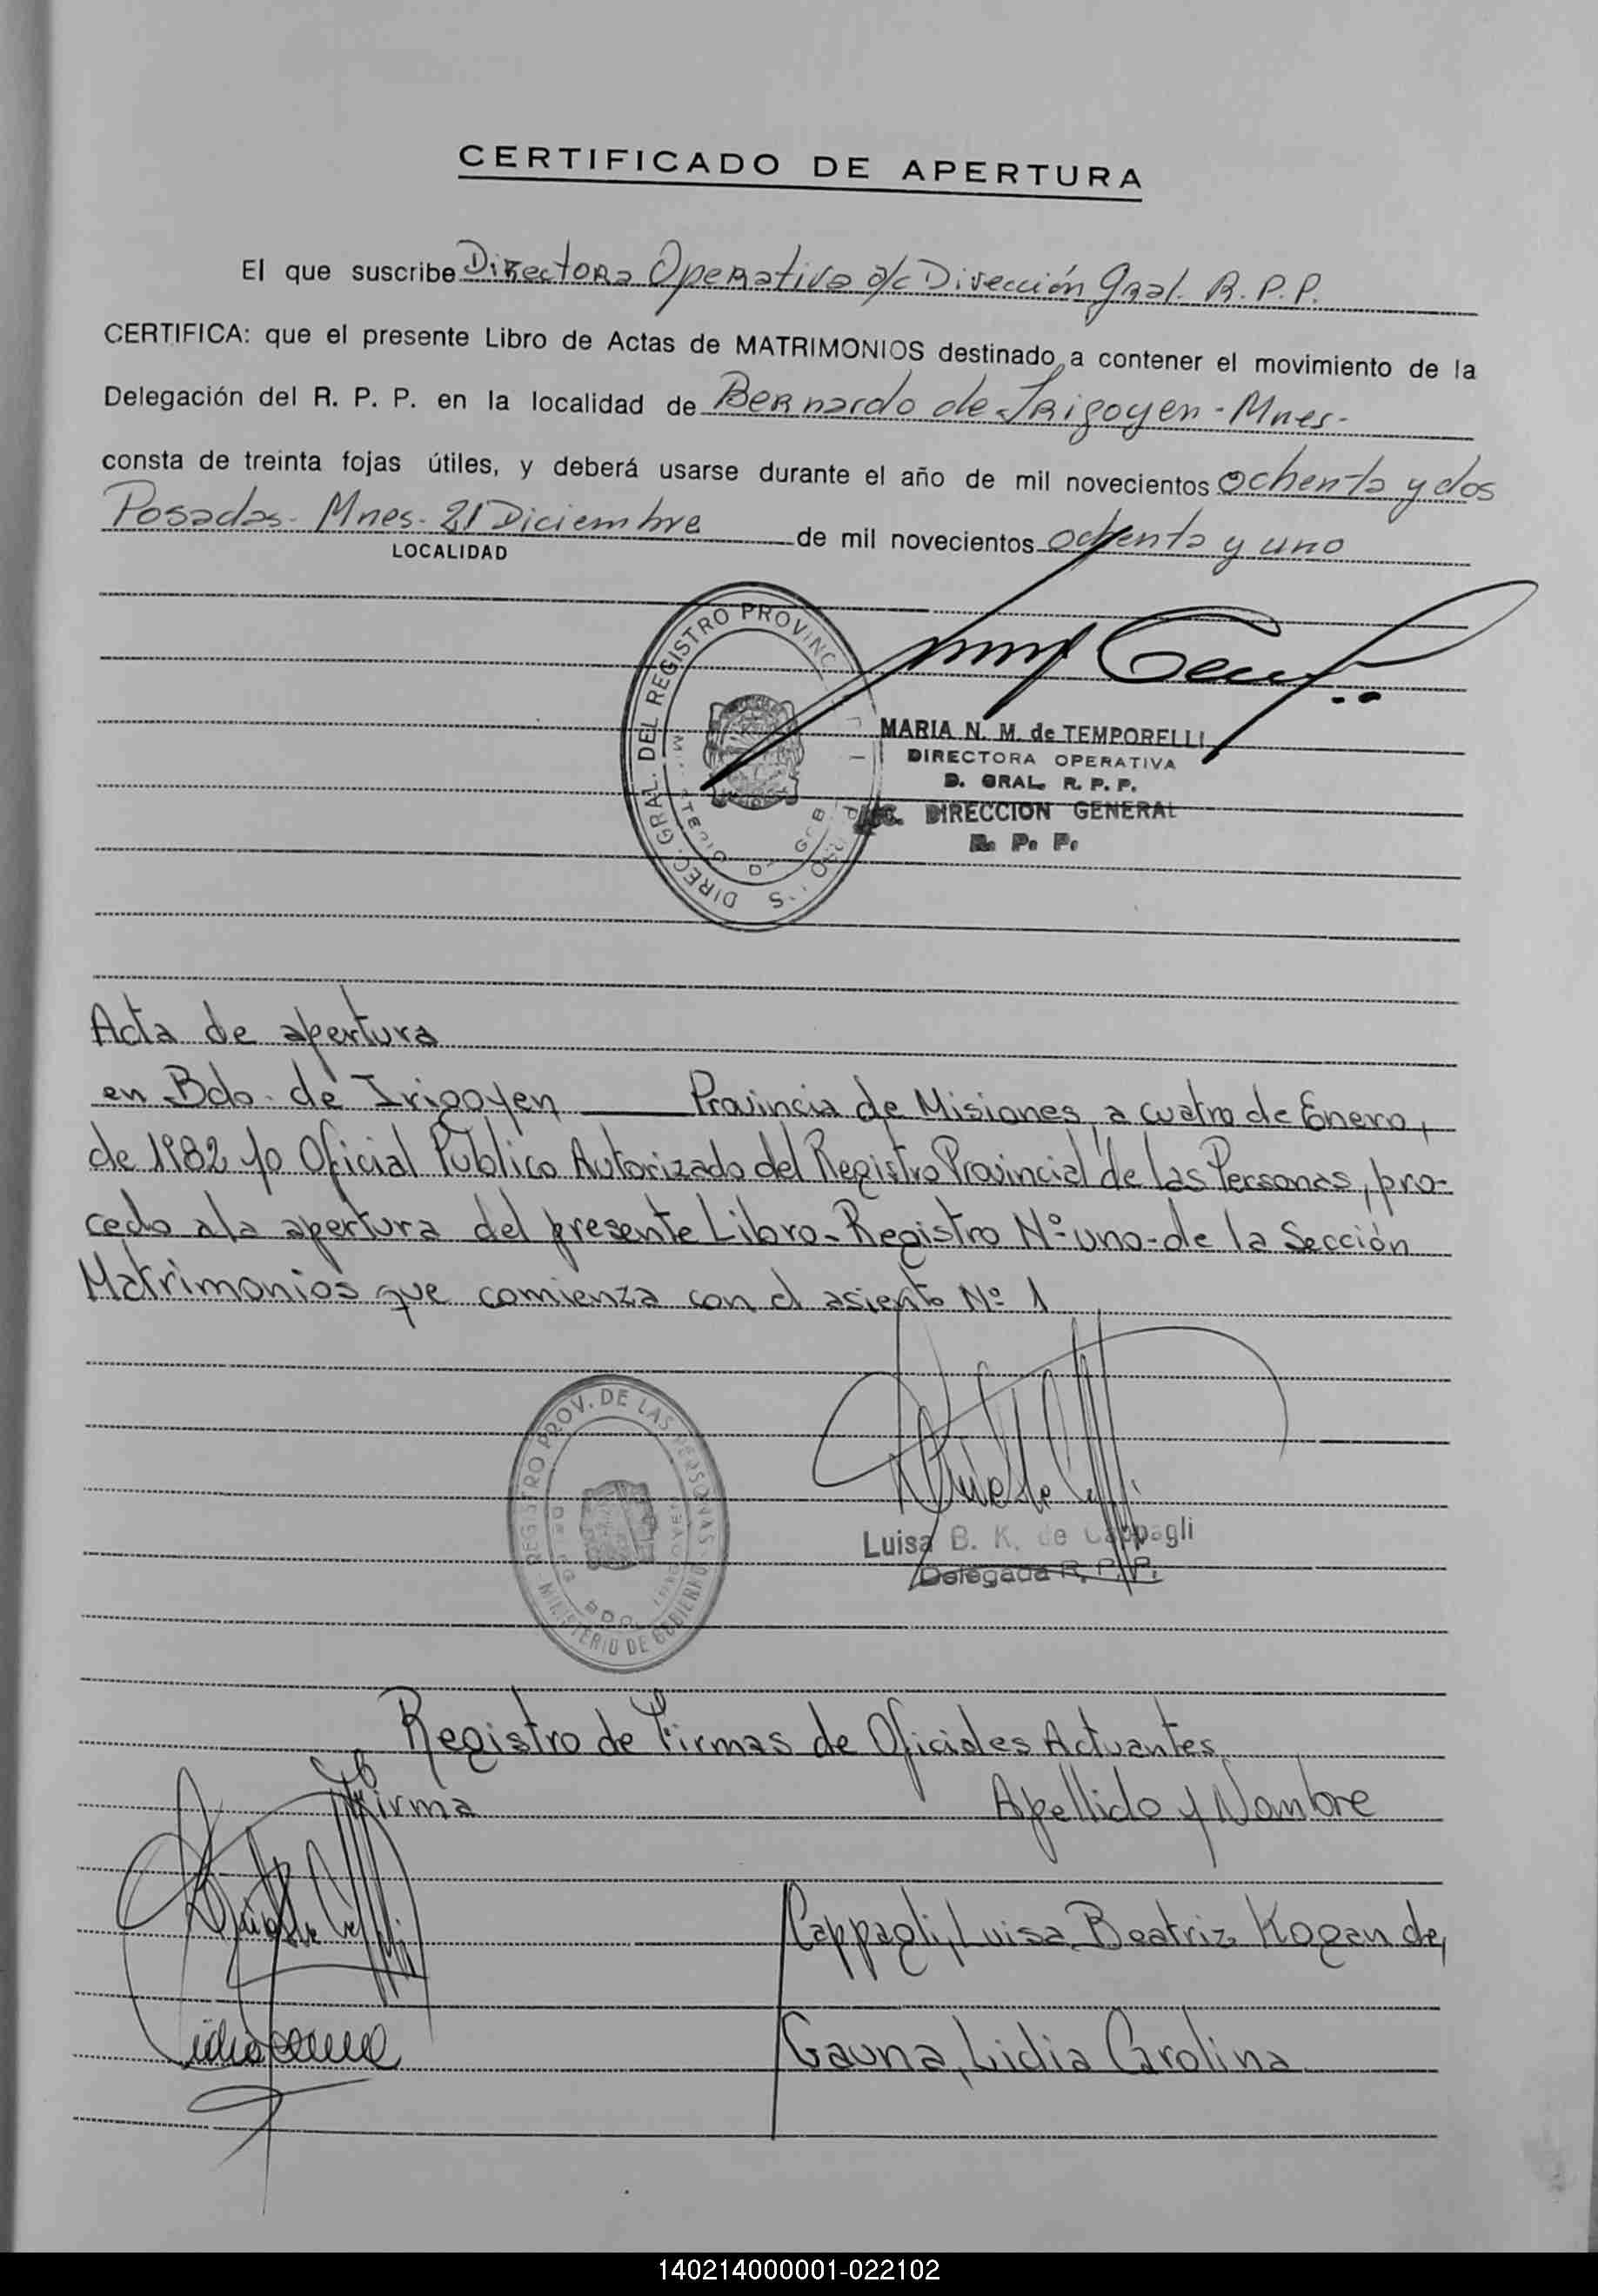 CERTIFICADO DE APERTURA
El que suscribe Directora Operativa a/c Dirección Gral. R.P.P.
CERTIFICA: que el presente Libro de Actas de MATRIMONIOS destinado a contener el movimiento de la
Delegación del R. P. P. en la localidad de Bernardo de Irigoyen - Mnes-
consta de treinta fojas útiles, y deberá usarse durante el año de mil novecientos ochenta y dos
Posadas- Mnes- 21 Diciembre de mil novecientos ochenta y uno
LOCALIDAD
DIREC. GRAL. DEL REGISTRO PROVINC
MARIA N. M. de TEMPORELLI
DIRECTORA OPERATIVA
D. GRAL. R. P. P.
DIRECCION GENERAL
R. P. P.
Acta de apertura
en Bdo. de Irigoyen Provincia de Misiones, a cuatro de Enero,
de 1982 yo Oficial Público Autorizado del Registro Provincial de las Personas, pro-
cedo a la apertura del presente Libro-Registro Nº uno- de la Sección
Matrimonios que comienza con el asiento Nº 1
REGISTRO PROV. DE LAS PERSONAS
MINISTERIO DE GOBIERNO
BDO. IRIGOYEN
Luisa B. K. de Cappagli
Delegada R. P. P.
Registro de Firmas de Oficiales Actuantes
Firma Apellido y Nombre
Cappagli, Luisa Beatriz Kogan de,
Gauna, Lidia Carolina
140214000001-022102